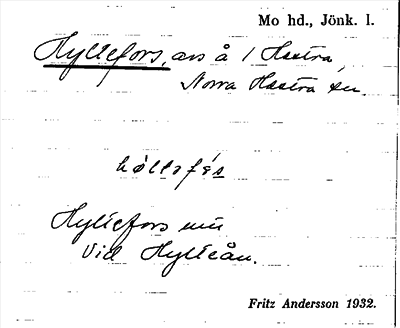 Mo hd., Jönk. l.
Hyltefors, avs å 1 Hestra,
Norra Hestra sn.
Hyltefors inu
Vid Hylteån.
Fritz Andersson 1932.